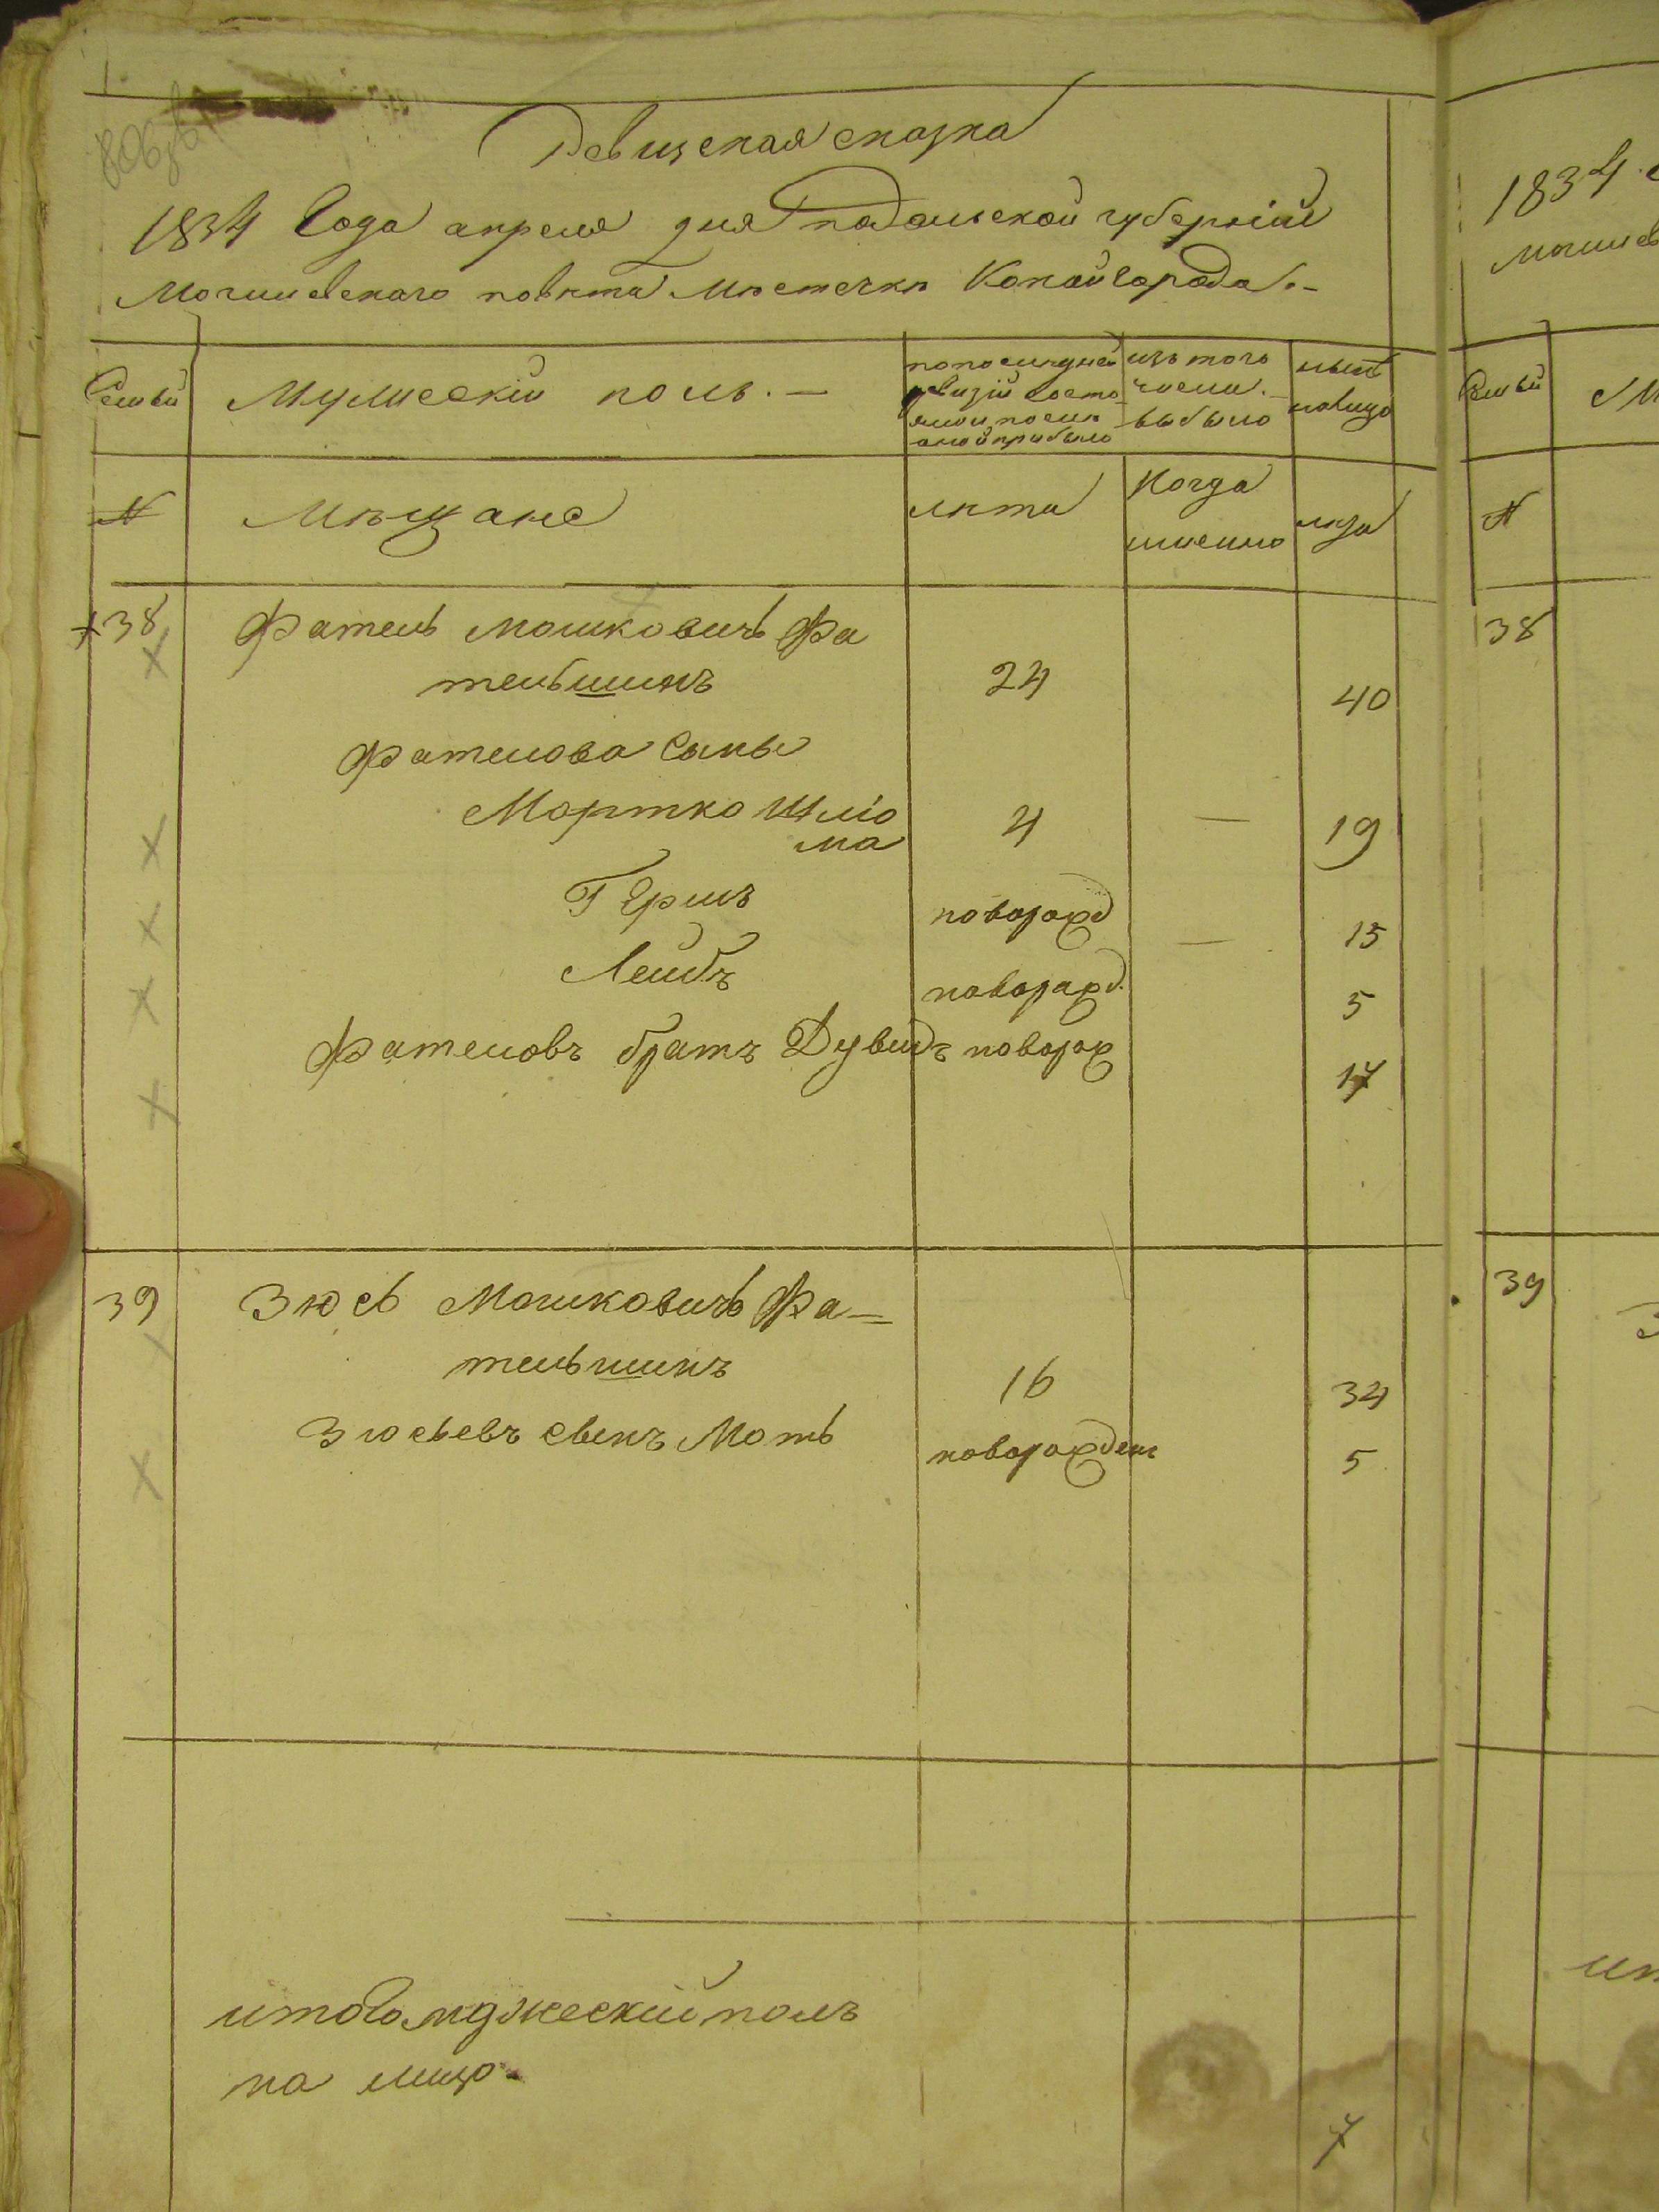 Ревизская сказка
1834 Года апреля дня Подольской губернiи
Могилевскаго повѣта Мѣстечкѣ Копайгорода.-
Семьи
Мужескiй полъ. —
по последней ревизiи состояло и после оной прибыло
изъ того числа выбыло
ныне налицо
№
Мѣщане
лѣта
Когда именно
лѣта
38
Фатель Мошковичь Фа
тельшикъ
24
40
Фателова Сыны
Мортко Шлiо
ма
4
—
19
Гершъ
новорожд
—
15
Леибъ
новорожд.
5
Фателовъ братъ Дувидъ
новорож
17
39
Зюсь Мошковичь Фа—
тельшикъ
16
34
Зюсьевъ сынъ Моть
новорожден
5
итого мужескiй полъ
на лицо.
7
1834
Могилев
Семьи
М
№
38
39